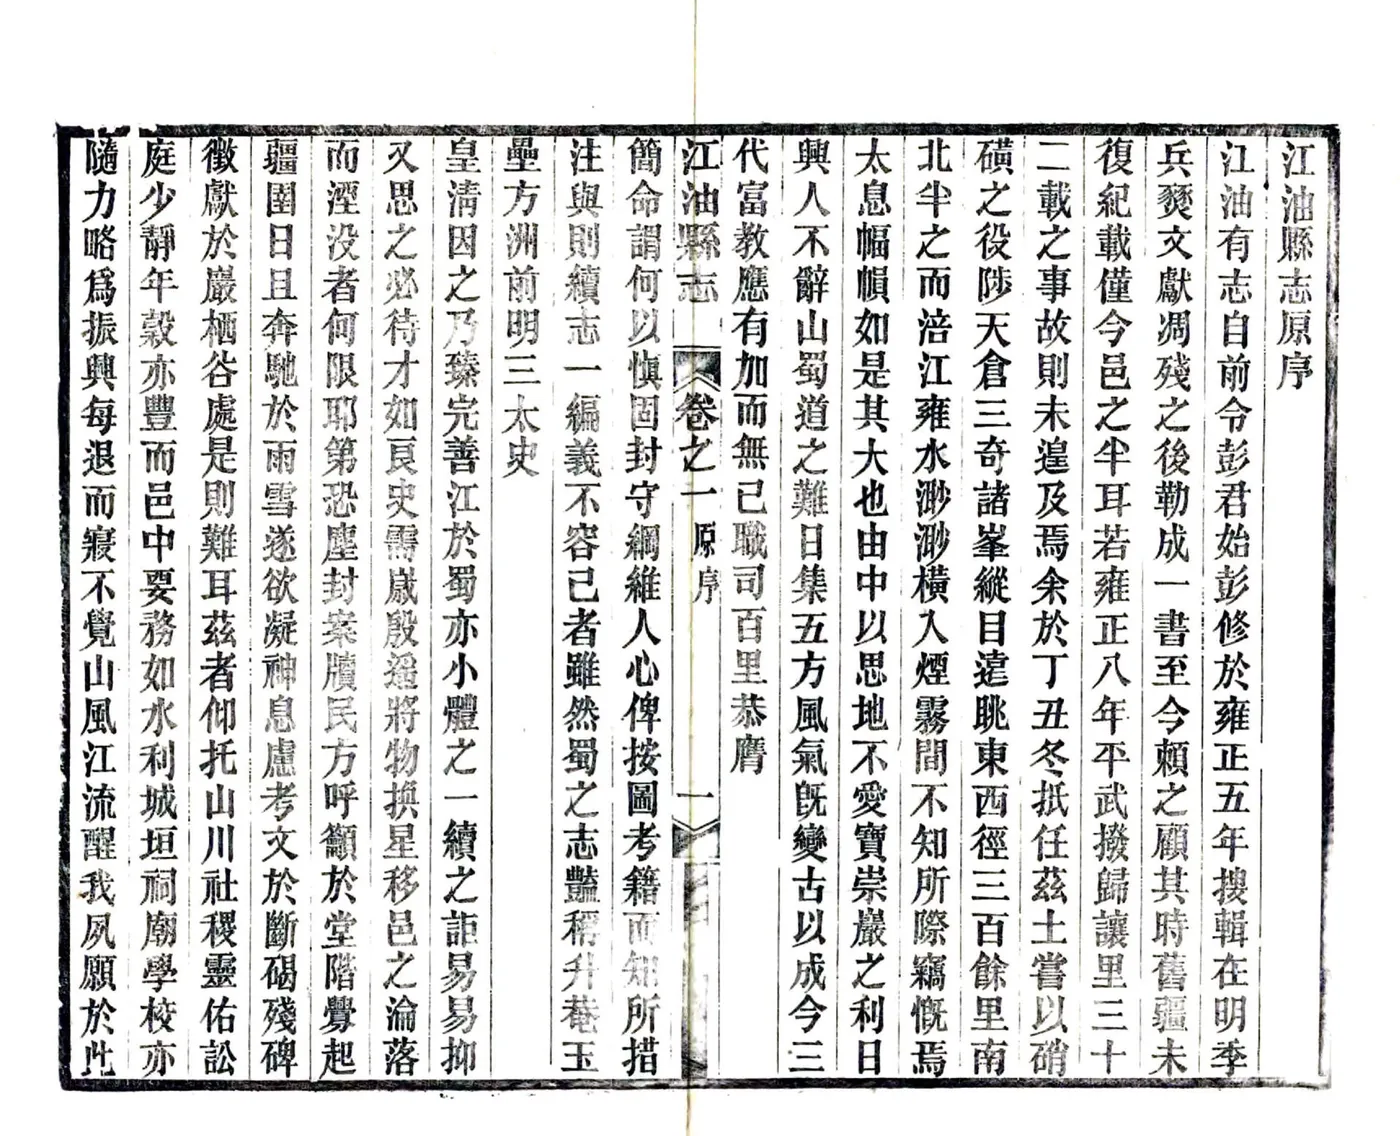 江油縣志原序
江油有志自前令彭君始彭修於雍正五年搜輯在明季
兵燹文獻凋殘之後勒成一書至今賴之顧其時舊疆未
復紀載僅今邑之半耳若雍正八年平武撥歸讓里三十
二載之事故則未遑及焉余於丁丑冬抵任茲土嘗以硝
磺之役陟天倉三奇諸峯縱目遠眺東西徑三百餘里南
北半之而涪江雍水渺渺橫入煙霧間不知所際竊慨焉
太息幅幀如是其大也由中以思地不愛寶崇巖之利日
興人不辭山蜀道之難日集五方風氣旣變古以成今三
代富教應有加而無已職司百里恭膺
江油縣志 卷之一 原序 一
簡命謂何以愼固封守綱維人心俾按圖考籍而知所措
注與則續志一編義不容已者雖然蜀之志豔稱升菴玉
壘方洲前明三太史
皇清因之乃臻完善江於蜀亦小體之一續之詎易易抑
又思之必待才如良史需嵗殷遥將物換星移邑之淪落
而湮没者何限耶第恐塵封案牘民方呼籲於堂階釁起
疆圉日且奔馳於雨雪遂欲凝神息慮考文於斷碣殘碑
徵獻於巖栖谷處是則難耳茲者仰托山川社稷靈佑訟
庭少靜年穀亦豐而邑中要務如水利城垣祠廟學校亦
隨力略爲振興每退而寢不覺山風江流醒我夙願於此